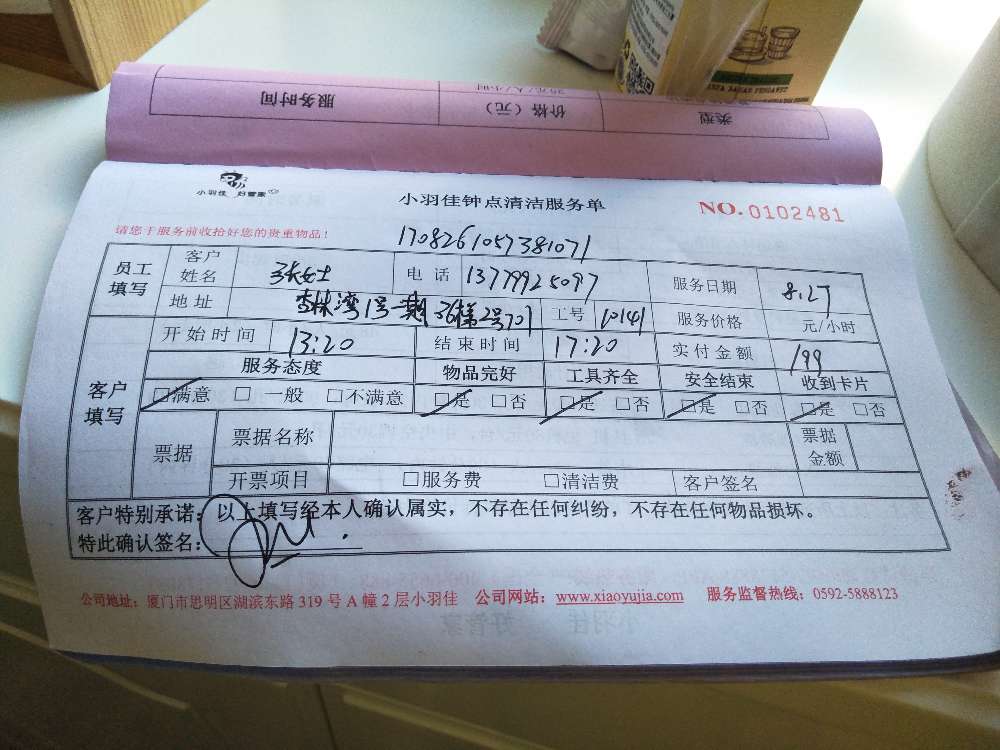 服务时间 价格（元） 类型
小羽佳 好管家
小羽佳钟点清洁服务单
NO. 0102481
请您于服务前收拾好您的贵重物品！
1708261057381071
员工填写 客户姓名 张女士 电话 13779925097 服务日期 8.27
地址 杏林湾1号一期36梯2号701 工号 10141 服务价格 元/小时
客户填写 开始时间 13:20 结束时间 17:20 实付金额 199
服务态度 物品完好 工具齐全 安全结束 收到卡片
□满意 □一般 □不满意 □是 □否 □是 □否 □是 □否 □是 □否
票据 票据名称 票据金额
开票项目 □服务费 □清洁费 客户签名
客户特别承诺：以上填写经本人确认属实，不存在任何纠纷，不存在任何物品损坏。
特此确认签名：
公司地址：厦门市思明区湖滨东路 319 号 A 幢 2 层小羽佳 公司网站：www.xiaoyujia.com 服务监督热线：0592-5888123